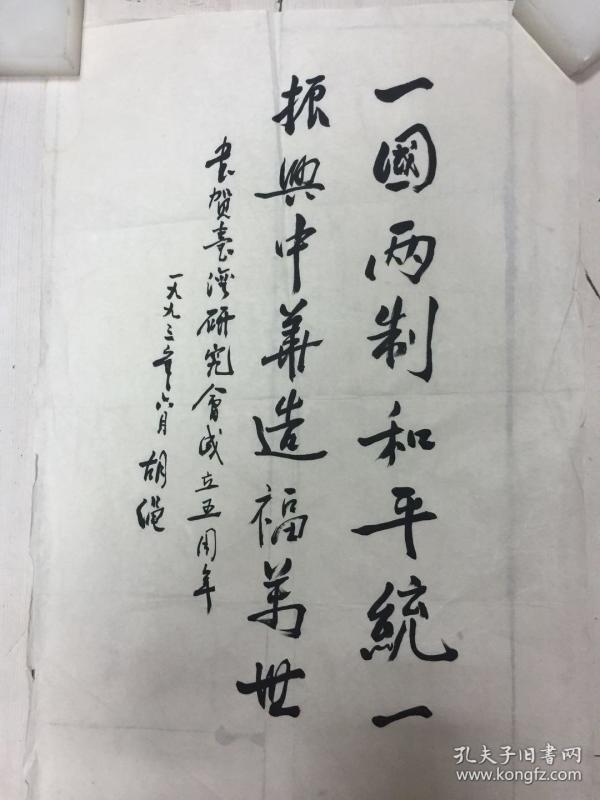 一國两制和平統一
振興中華造福萬世
书贺臺湾研究會成立五周年
一九九三年六月 胡绳
孔夫子旧書网
www.kongfz.com